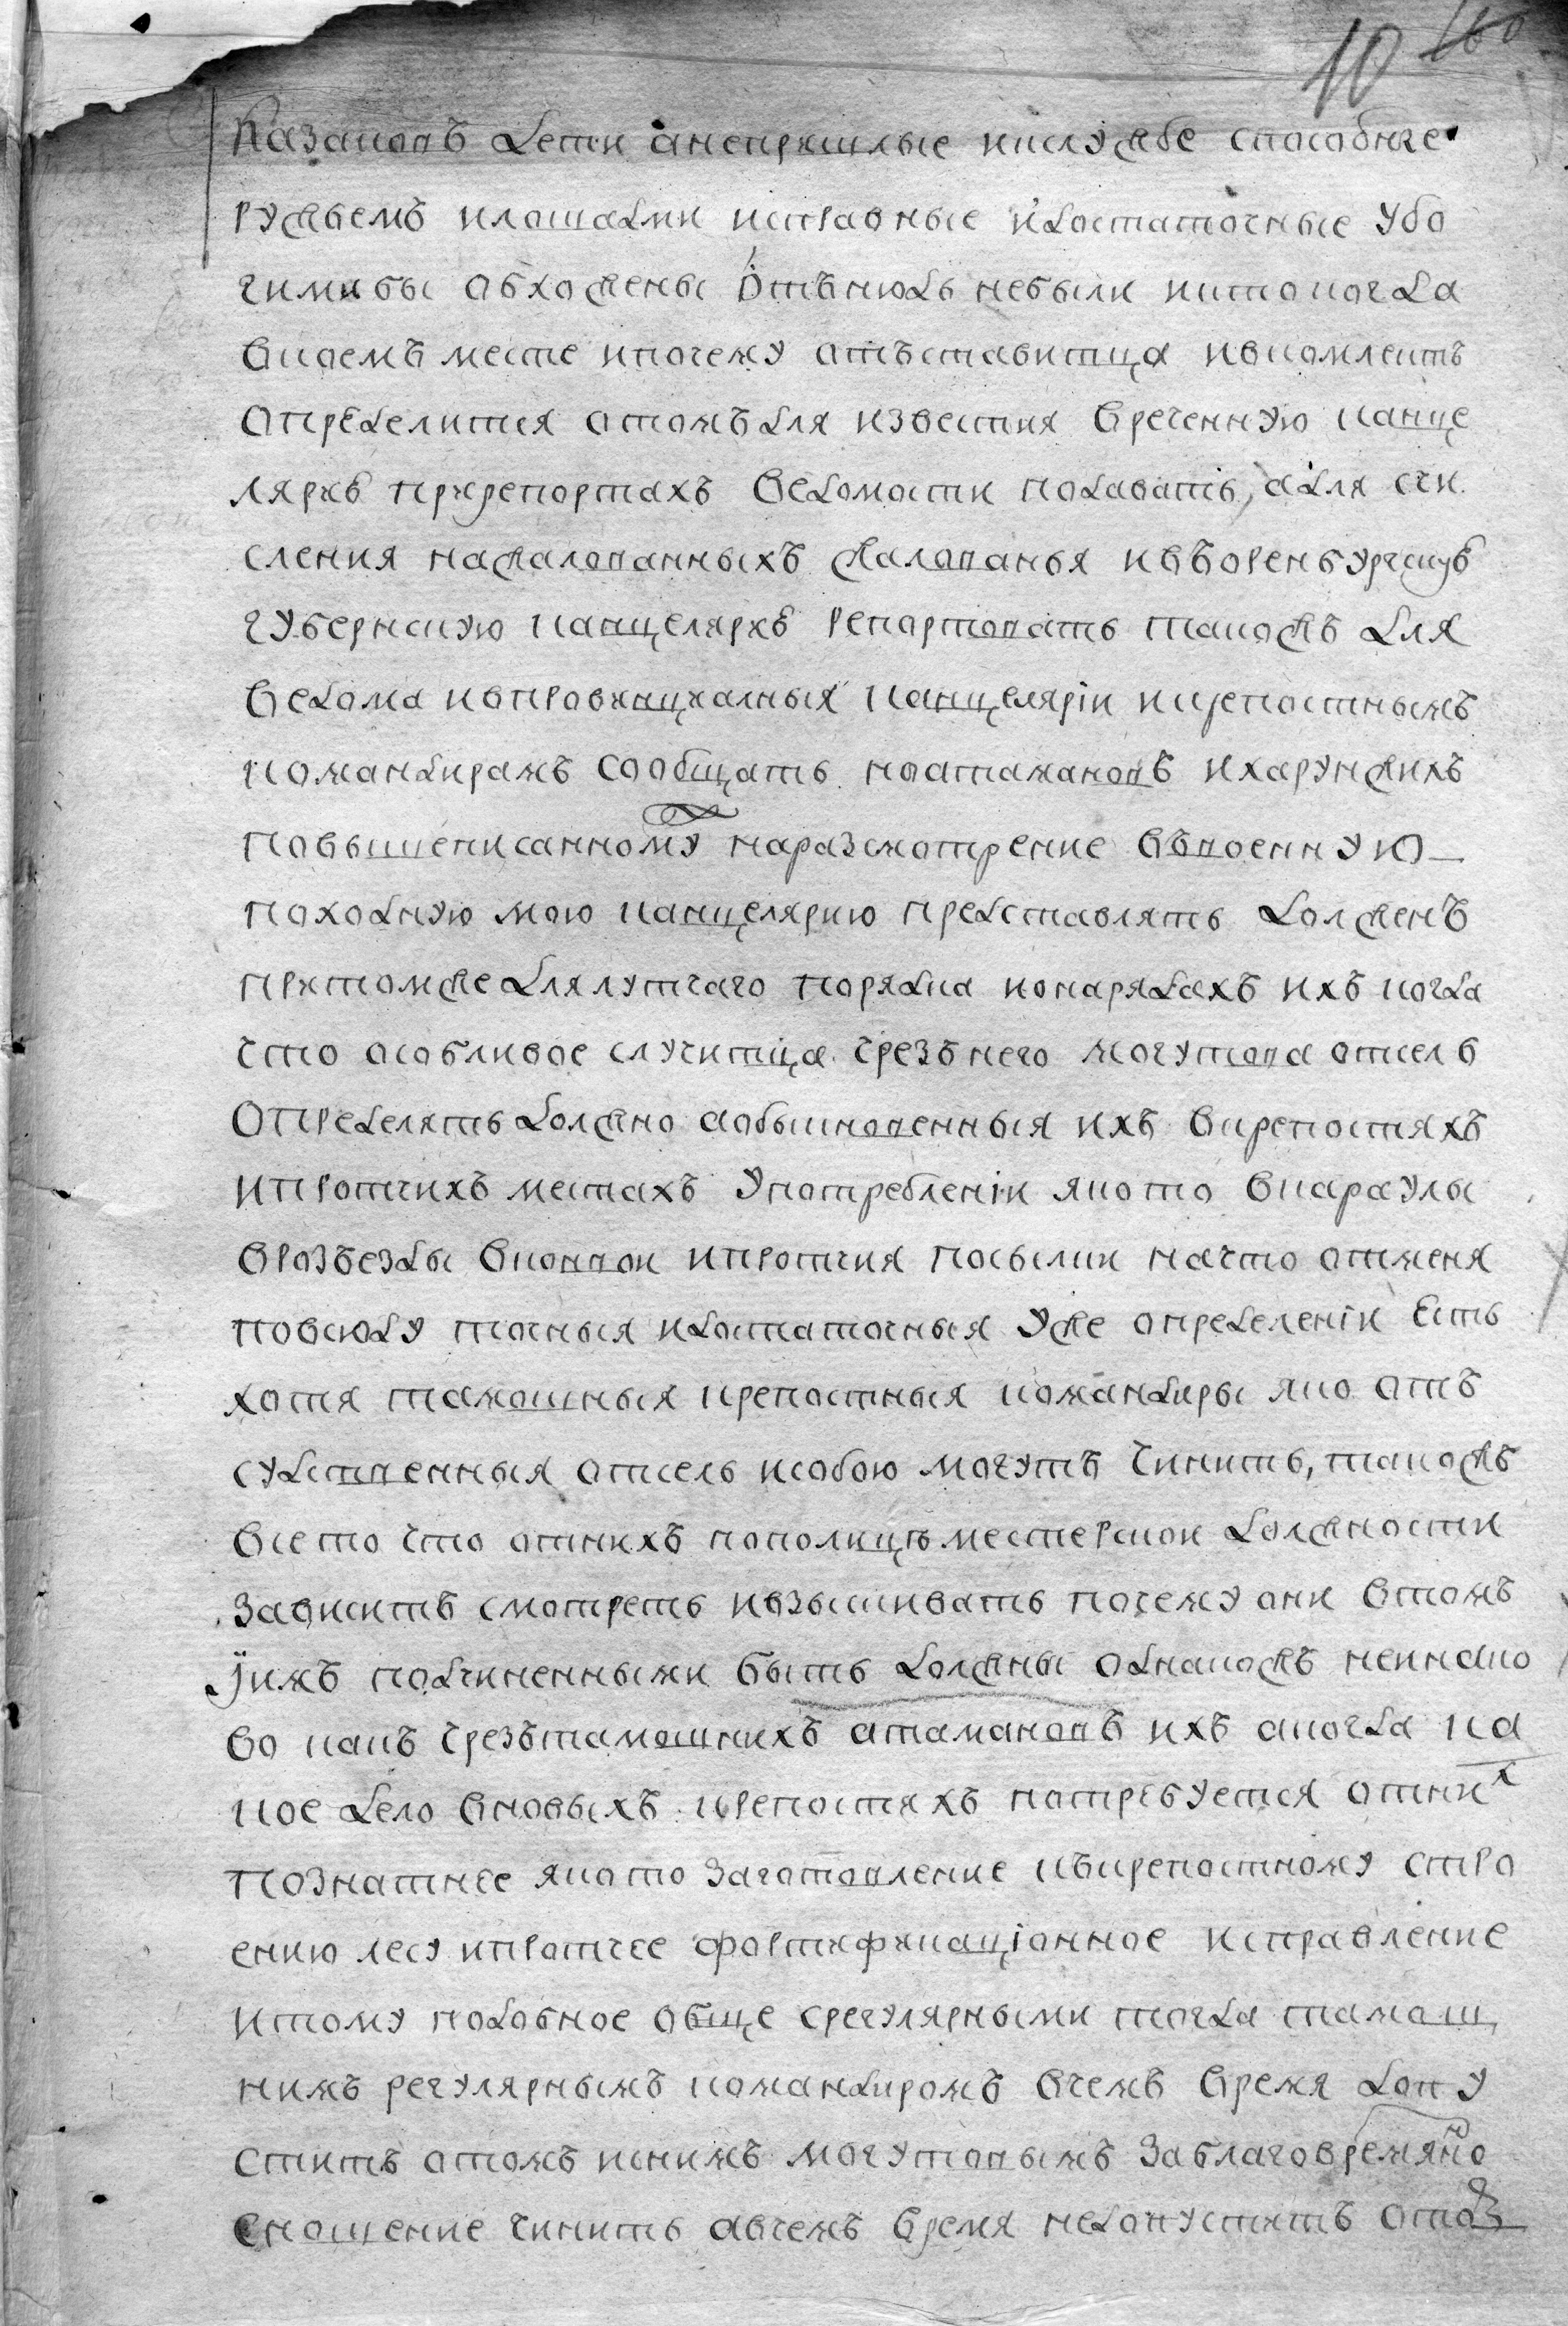 10 160
казаковъ дети анепришлые икслужбе способные
ружьемъ илошадми исправные идостаточные убо
гимибы абхождены отънюдь небыли иктокогда
вкоемъ месте ипочему отъставитца ивкомплектъ
определитца отомъ для известия вреченную канце
лярию прирепортахъ ведомости подавать, адля счи
сления нажалованныхъ жалованья ивъоренбургскую
губернскую канцелярию репортовать такожъ для
ведома ипровинциалныя канцелярiи икрепостнымъ
командирамъ сообщатьноатамановъ ихарунжихъ
повышеписанному наразсмотрение въвоенную
походную мою канцелярию представлять долженъ
притомже длялутчаго порядка инарядахъ ихъ когда
что особливое случитца чрезънего могутова отсель
определять должно аобыкновенныя ихъ вкрепостяхъ
ипротчихъ местахъ употребленiи якото вкараулы
вразъезды вконвои ипротчия посылки начто отменя
повсюду точныя идостаточныя уже определенiи есть
хотя тамошныя крепостныя командиры яко отъ
судственныя отсель исобою могутъ чинить, такожъ
все то что отнихъ пополицъместерской должности
зависитъ смотреть ивзыскивать почему они втомъ
уимъ подчиненными быть должны однакожъ неинако
во какъ чрезътамошнихъ атамановъ ихъ акогда ка
кое дело вновыхъ крепостяхъ потребуетца отних
познатнее якото заготовление къкрепостному стро
ению лесу ипротчее фортификацiонное исправление
иктому подобное обще срегулярными тогда тамош
нимъ регулярнымъ командиромъ вчемъ время допу
ститъ отомъ иснимъ могутовымъ заблаговремянно
сношение чинить авчемъ время недопуститъ отоз